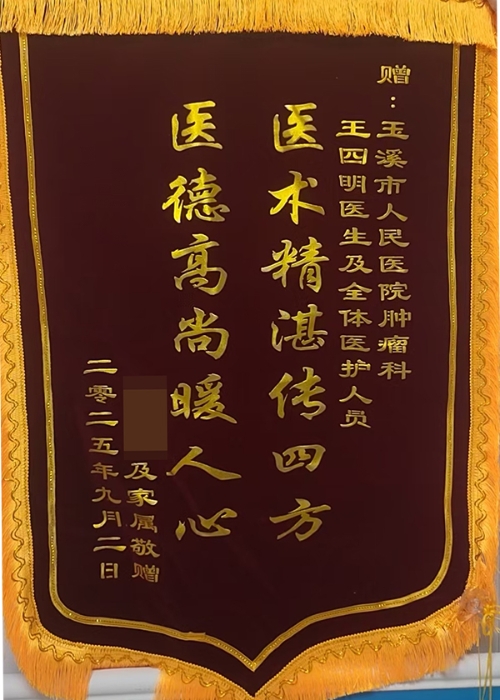 赠：玉溪市人民医院肿瘤科
王四明医生及全体医护人员
医术精湛传四方
医德高尚暖人心
及家属敬赠
二零二五年九月二日